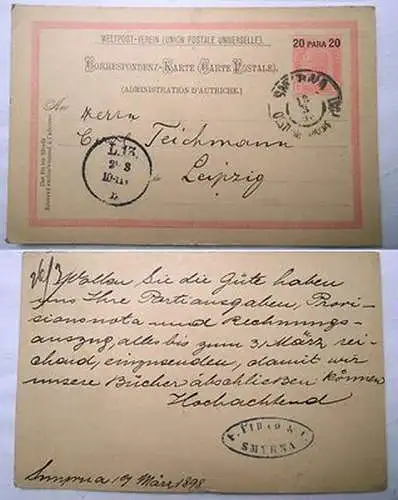 WELTPOST-VEREIN (UNION POSTALE UNIVERSELLE).
CORRESPONDENZ-KARTE (CARTE POSTALE).
(ADMINISTRATION D'AUTRICHE.)
20 PARA 20
An
Herrn
Teichmann
Leipzig
L. 13.
Wollen Sie die Güte haben
uns Ihre Portiausgaben, Provi-
sionsnota und Rechnungs-
auszug, alles bis zum 31 März rei-
chend, einzusenden, damit wir
unsere Bücher abschließen können
Hochachtend
SMYRNA
Smyrna März 1898